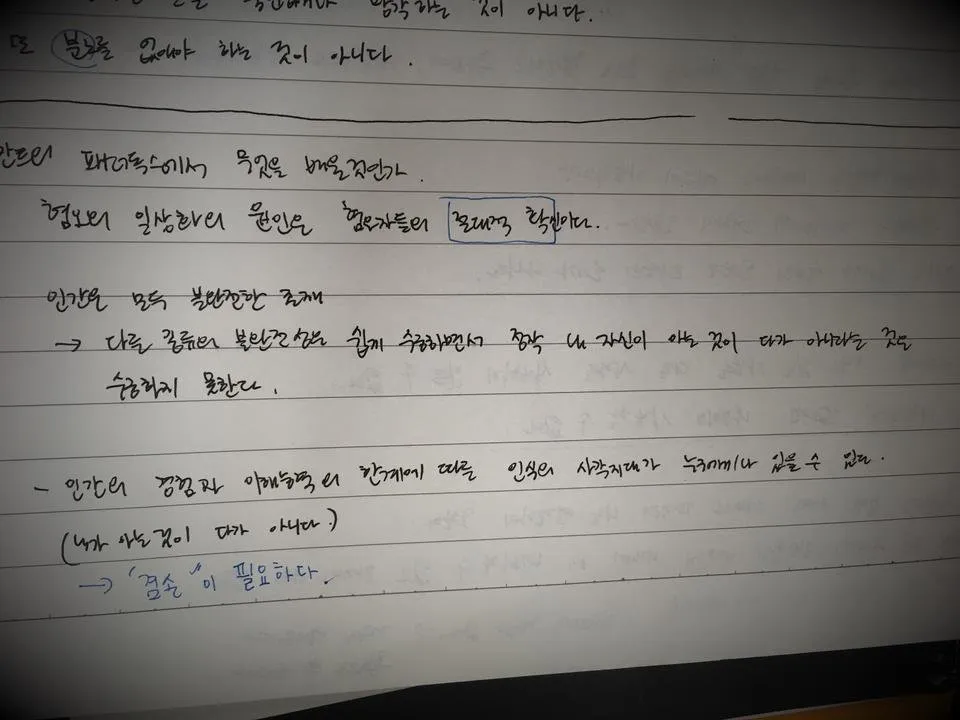 하는 것이 아니다.
또 분노를 없애야 하는 것이 아니다.
패러독스에서 무엇을 배울것인가.
혐오의 일상화의 원인은 혐오자들의 절대적 확신이다.
인간은 모두 불완전한 존재
→ 다른 종류의 불완전성은 쉽게 수긍하면서 정작 내 자신이 아는 것이 다가 아니라는 것은
수긍하지 못한다.
- 인간의 경험과 이해능력의 한계에 따른 인식의 사각지대가 누구에게나 있을 수 있다.
(내가 아는 것이 다가 아니다.)
→ "겸손"이 필요하다.